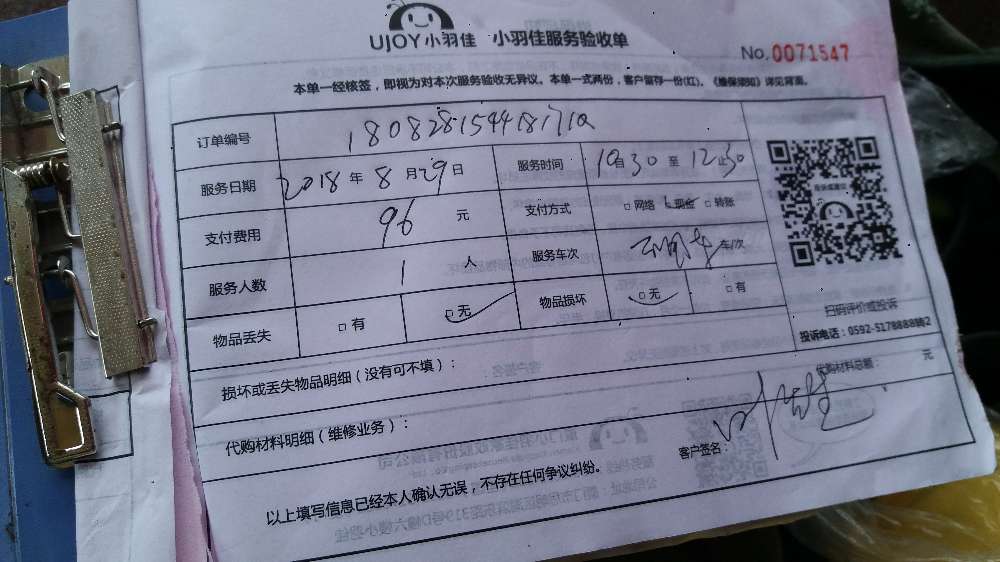 UJOY小羽佳 小羽佳服务验收单
No.0071547
本单一经核签，即视为对本次服务验收无异议。本单一式两份，客户留存一份(红)。《维保须知》详见背面。
订单编号
服务日期 2018 年 8 月 29 日 服务时间 10 30 至 12 30
支付费用 96 元 支付方式 □网络 □现金 □转账
服务人数 1 人 服务车次 车/次
物品丢失 □有 □无 物品损坏 □无 □有
扫码评价或投诉
投诉电话：0592-5178888转2
损坏或丢失物品明细（没有可不填）：
代购材料明细（维修业务）： 代购材料总额： 元
客户签名：
以上填写信息已经本人确认无误，不存在任何争议纠纷。